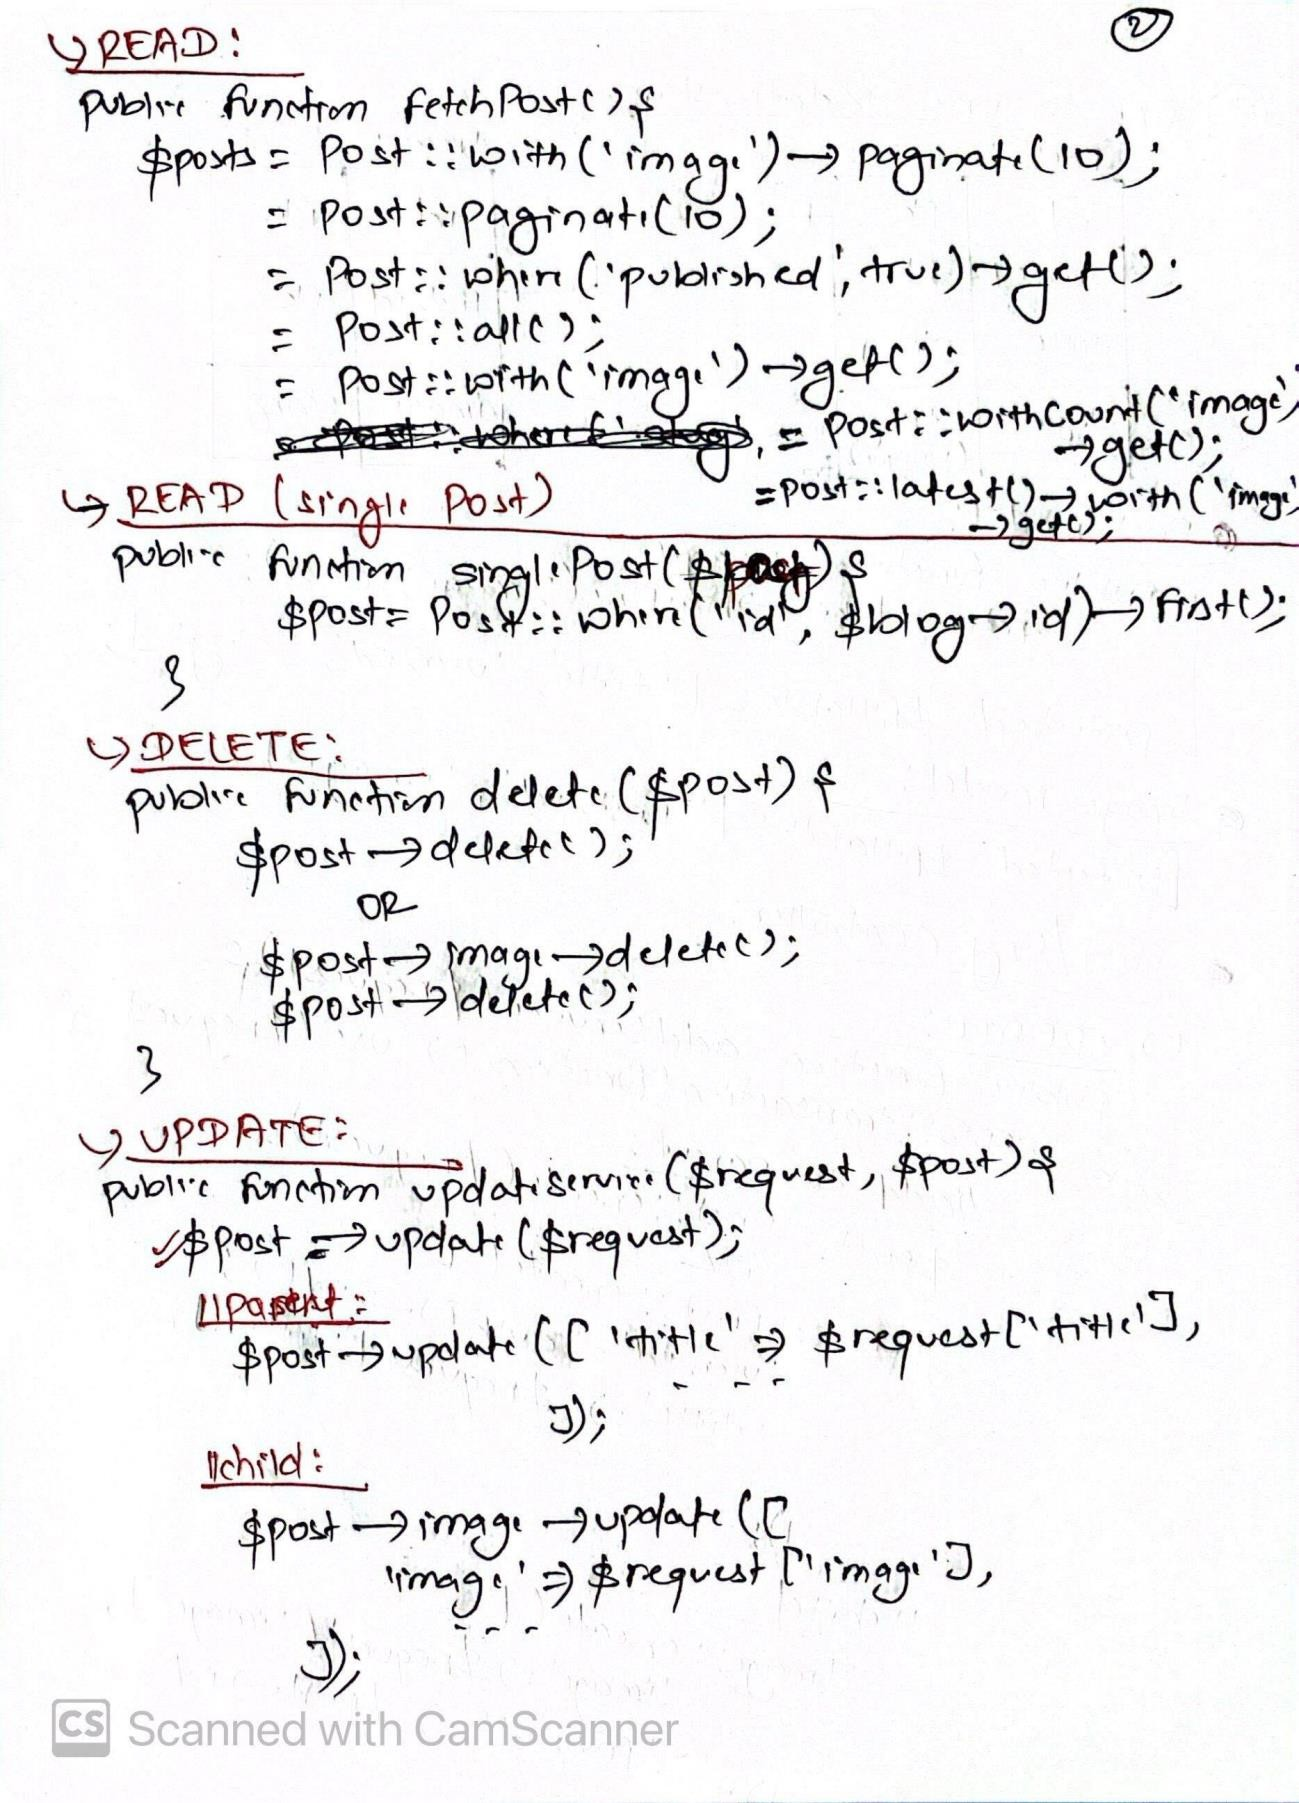 ②
↳ READ:
public function fetchPost(){
$posts = Post::with('image')→paginate(10);
= Post::paginate(10);
= Post::where('published', true)→get();
= Post::all();
= Post::with('image')→get();
= Post::withCount('image')
→get();
= Post::latest()→with('image'
→get();
↳ READ (single Post)
public function singlePost($post){
$post = Post::where('id', $blog→id)→first();
}
↳ DELETE:
public function delete($post){
$post→delete();
OR
$post→image→delete();
$post→delete();
}
↳ UPDATE:
public function updateservice($request, $post){
✓$post⇒update($request);
//parent:
$post→update(['title' => $request['title'],
- - -
]);
//child:
$post→image→update([
'image' => $request['image'],
- - -
]);
CS Scanned with CamScanner